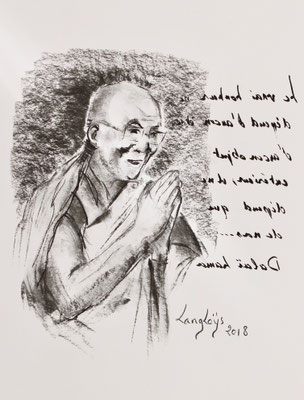 Le vrai bonheur
dépend d'aucun
d'aucun objet
extérieur, il ne
dépend que
de nous...
Dalaï Lama
Langloÿs
2018